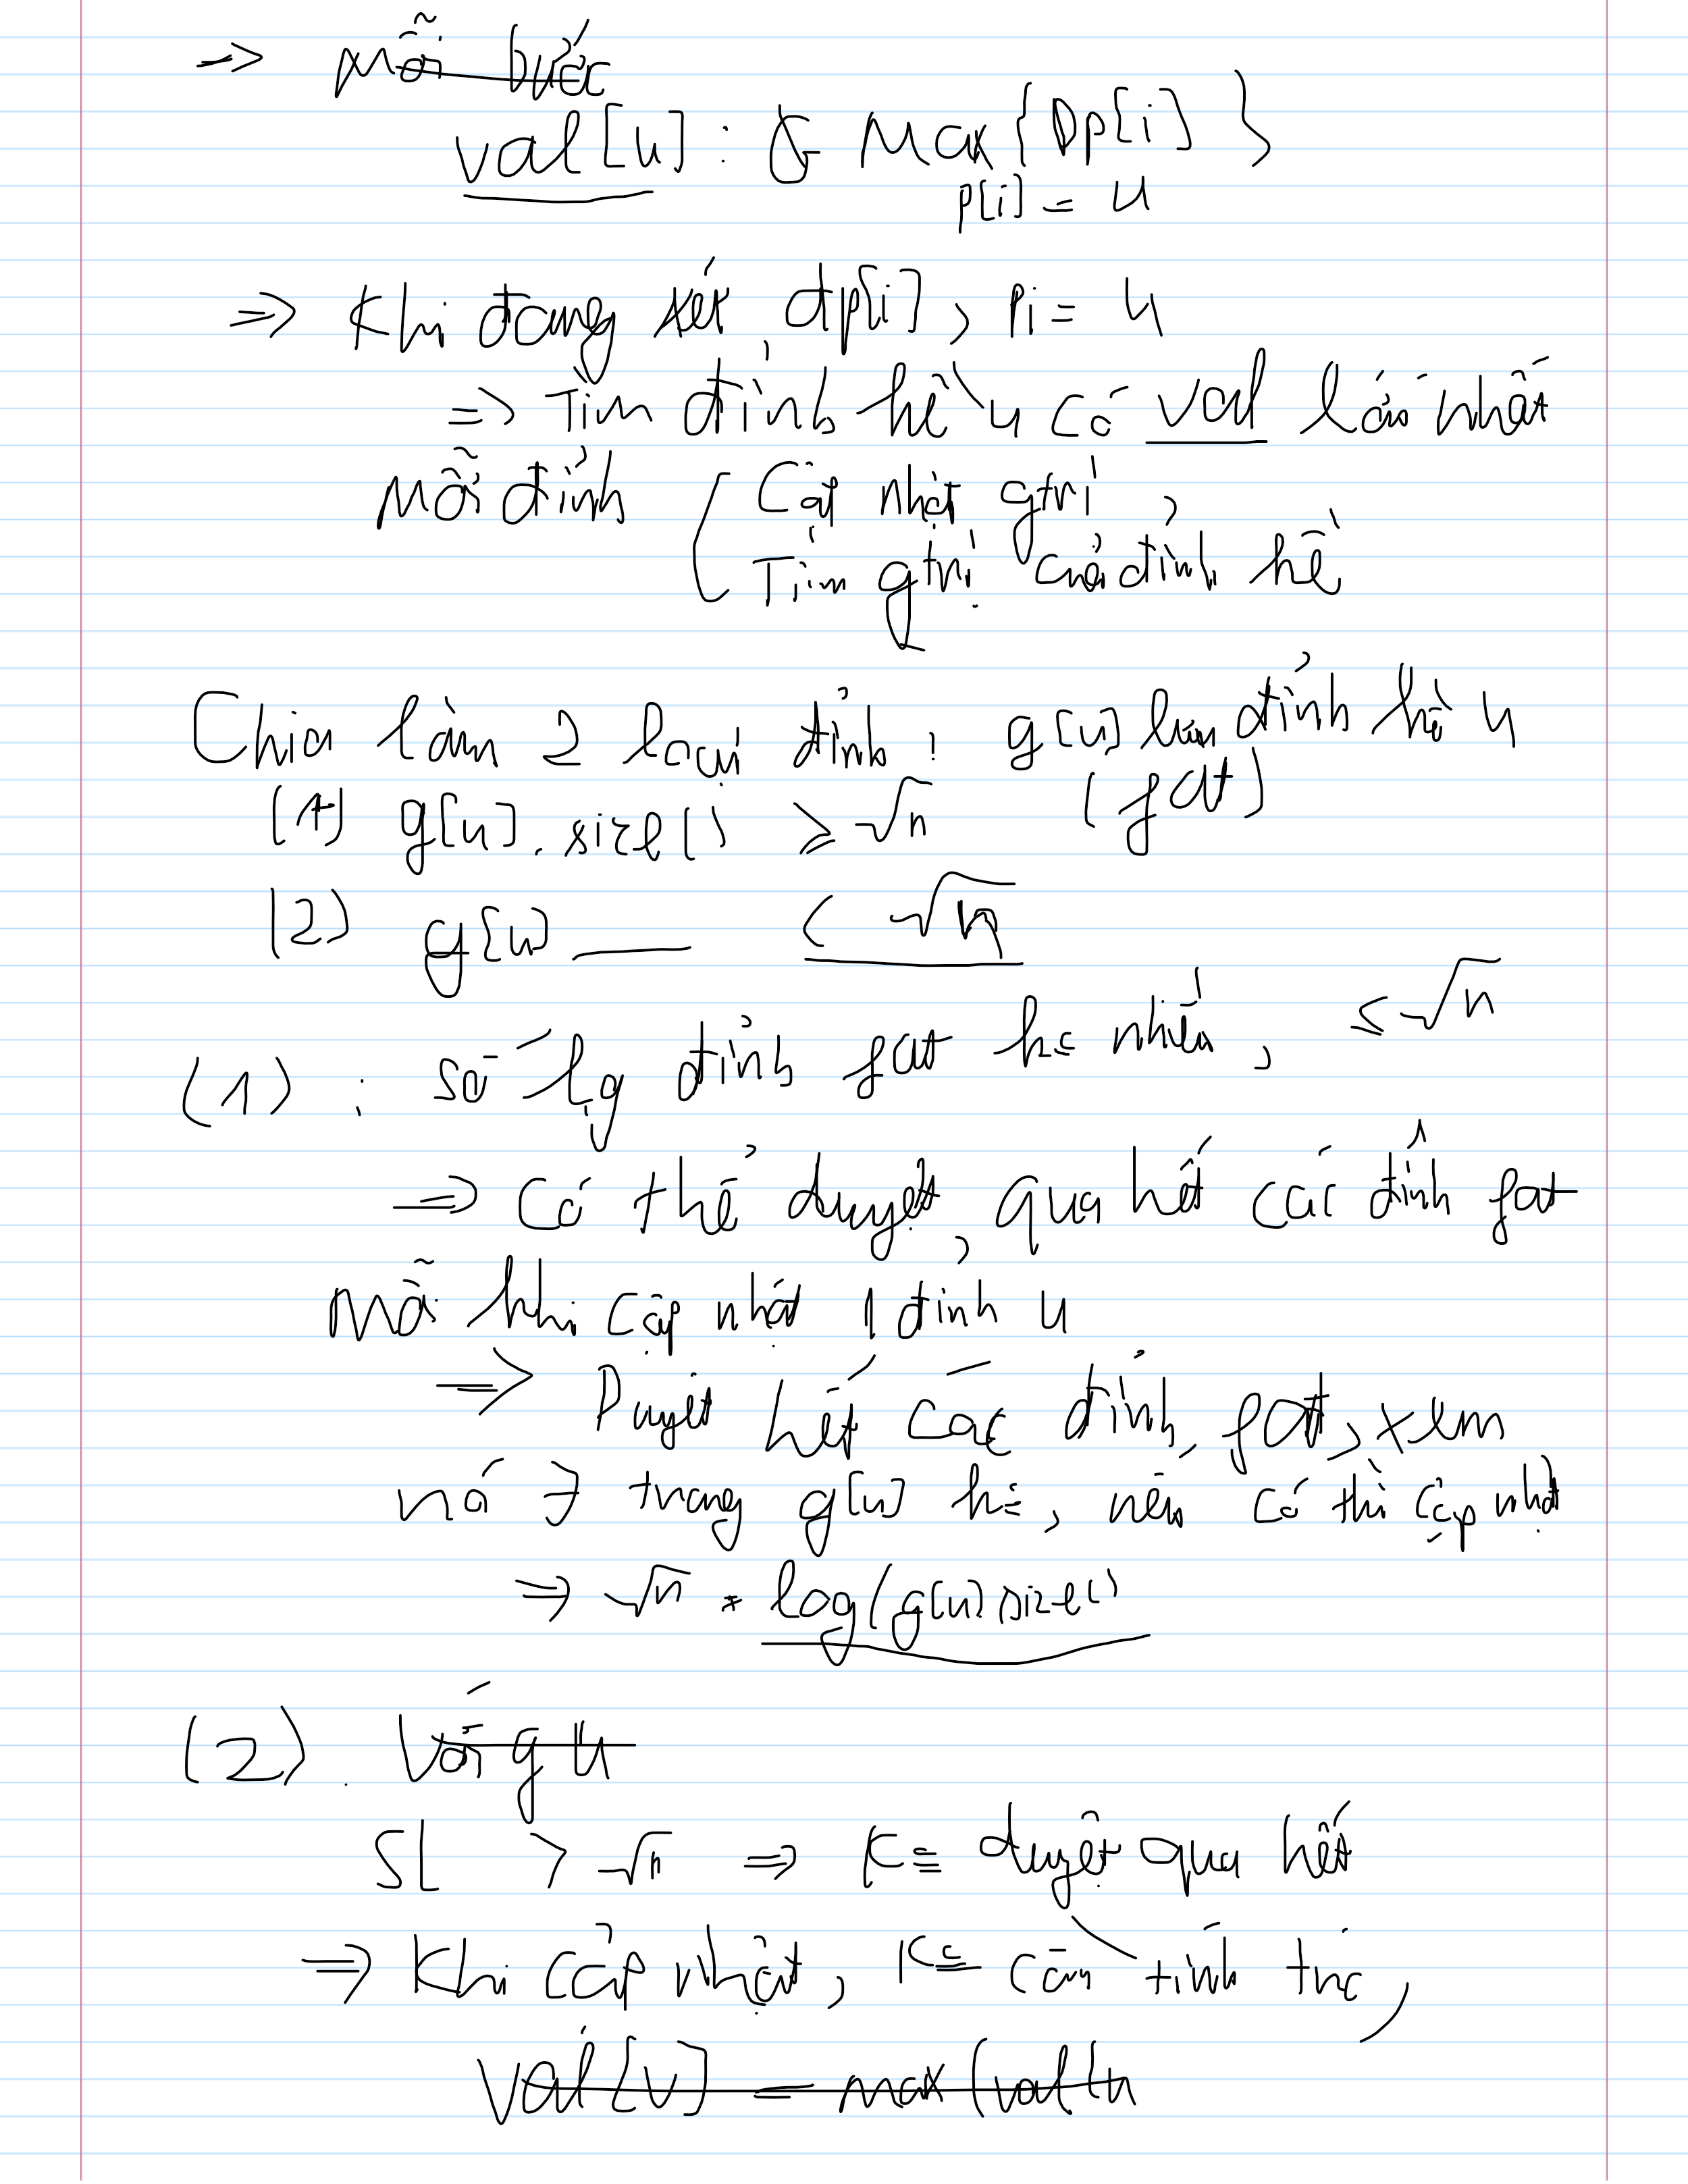 ⇒ Mỗi bước
val[u] : Max{Dp[i]}
p[i] = u
⇒ Khi đang xét dp[i], Pi = u
⇒ Tìm đỉnh kề u có val lớn nhất
Mỗi đỉnh [ Cập nhật gtrị
Tìm gtrị của đỉnh kề
Chia làm 2 loại đỉnh: g[u] lưu đỉnh kề u
(1) g[u].size() ≥ √n (fat)
(2) g[u] —— < √n
(1) : số lg đỉnh fat k nhiều, ≤ √n
⇒ Có thể duyệt qua hết các đỉnh fat
Mỗi khi cập nhật 1 đỉnh u
⇒ Duyệt hết các đỉnh fat, xem
nó ∃ trong g[u] k, nếu có thì cập nhật
⇒ √n * log(g[u] size()
(2). Với g u
SL > √n ⇒ K duyệt qua hết
⇒ Khi cập nhật, K cần tính trc,
val[v] = max(val[u